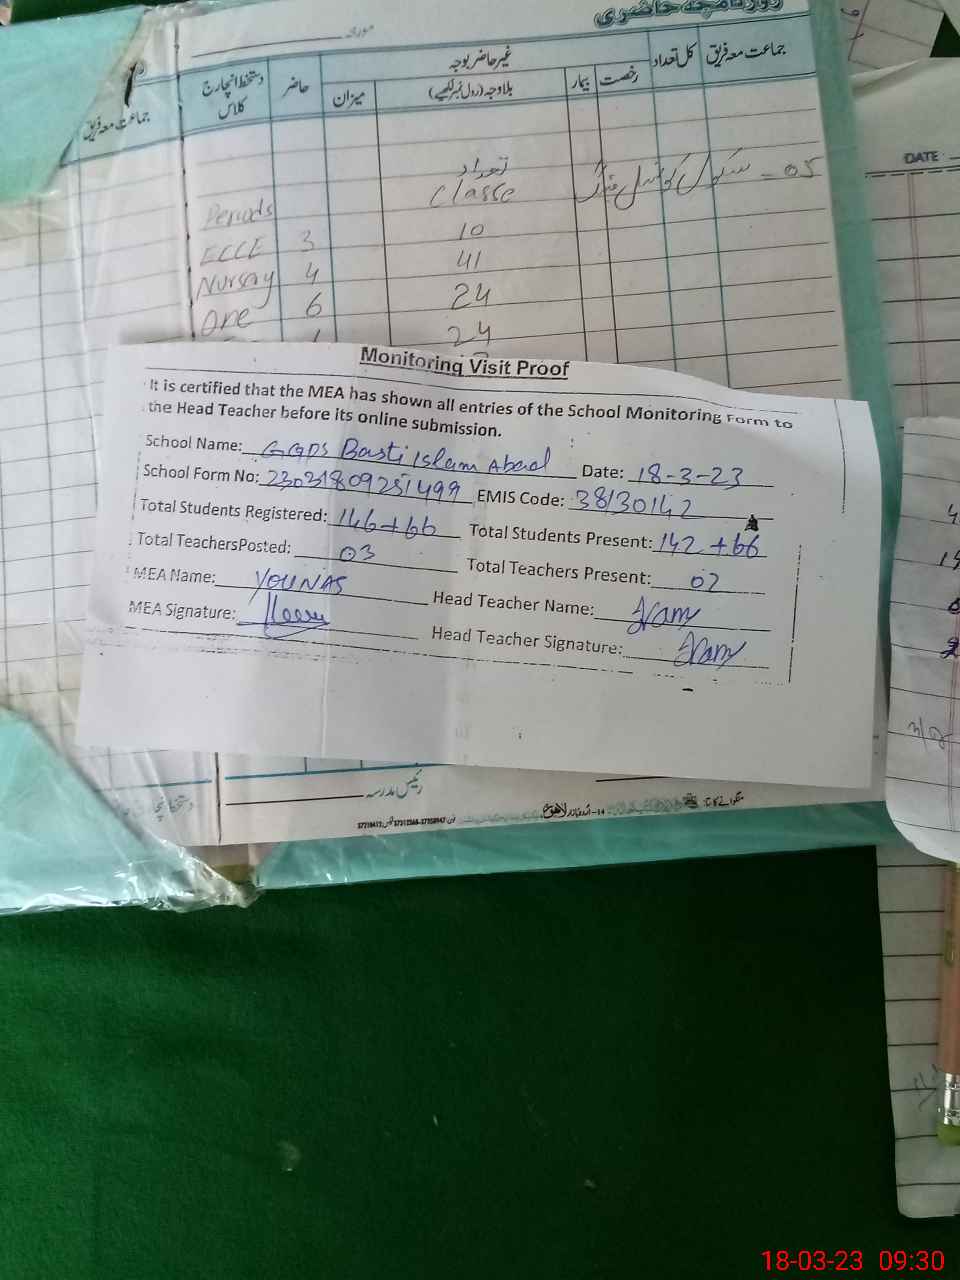 روزنامچہ حاضری
مورخہ
جماعت معہ فریق
کل تعداد
غیر حاضر بوجہ
رخصت
بیمار
بلاوجہ (رول نمبر لکھیے)
میزان
حاضر
دستخط انچارج کلاس
جماعت معہ فریق
DATE
05 -
تعداد
Periods Classe
ECCE 3 10
Nursery 4 41
One 6 24
24
Monitoring Visit Proof
It is certified that the MEA has shown all entries of the School Monitoring Form to
the Head Teacher before its online submission.
School Name: GGPS Basti Islam Abad Date: 18-3-23
School Form No: EMIS Code: 38130142
Total Students Registered: 146+66 Total Students Present: 142+66
Total TeachersPosted: 03 Total Teachers Present: 02
MEA Name: YOUNAS Head Teacher Name: Iram
MEA Signature: Head Teacher Signature: Iram
رئیس مدرسہ
18-03-23 09:30